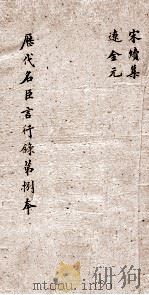 宋續集
遼金元
歷代名臣言行錄第捌夲